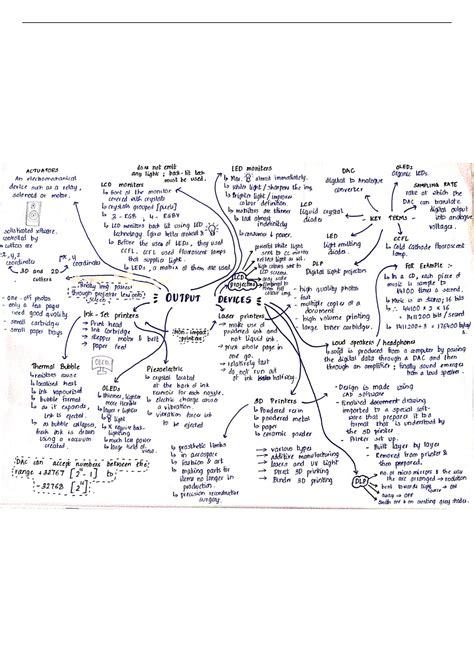 ACTUATORS
An electromechanical
device such as a relay,
solenoid or motor.
2D and 3D
cutters
does not emit
any light; back-lit tech
must be used.
LCD monitors
↳ front of the monitor
covered with crystals
↳ crystals grouped [pixels]
↳ 3 - RGB, 4 - RGBY
↳ LCD monitors back lit using LED
technology
↳ Before the use of LEDs, they used
CCFL, used fluorescent lamps
that supplied light.
↳ LEDs, a matrix of them are used
LED monitors
↳ Max. almost immediately.
↳ white light / sharpens the img.
↳ brighter light / improves
colour definition.
↳ monitors are thinner
↳ last almost
indefinitely
↳ consumes ↓ power.
LCD
projectors
DAC
digital to analogue
converter
LCD
liquid crystal
diodes
LED
light emitting
diodes.
DLP
Digital light projector
← KEY TERMS →
OLEDs
organic LEDs.
SAMPLING RATE
rate at which the
DAC can translate
digital output
into analogue
voltages.
CCFL
cold cathode fluorescent
lamp.
FOR EXAMPLE :-
↳ In a CD, each piece of
music is sample to
44100 Hz.
↳ Music in stereo; 16 bits
∴ 44100 x 2 x 16
= 1411200 bits / second
1411200 ÷ 8 = 176400 bytes/
OUTPUT DEVICES
- one-off photos
- only a few pages
need good quality
- small cartridges
- small paper trays
Ink-Jet printers
↳ Print head
↳ Ink cartridge
↳ stepper motor & belt
↳ paper feed
[non-impact;
printers]
Laser printers
↳ make use of
powdered ink and
not liquid ink.
↳ print whole page in
one go.
↳ relatively fast
↳ do not run out
of ink halfway
- high quality photos
- fast
- multiple copies of a
document
- high volume printing
- large toner cartridges.
Loud speakers / headphones
↳ sound is produced from a computer by passing
the digital data through a DAC and then
through an amplifier; finally sound emerges
from a loud speaker.
Thermal Bubble
↳ resistors cause
↳ localised heat
↳ ink vapourised
↳ bubble formed
↳ as it expands,
ink is ejected.
↳ as bubble collapses,
fresh ink is drawn
using a vacuum
created.
OLED
OLEDs
↳ thinner, lighter
more flexible
↳ layers lighter
↳ ↑ light
↳ X require back
lighting
↳ much less power
↳ large field of view
Piezoelectric
↳ crystal located
at the back of ink
reservoir for each nozzle.
↳ electric charge causes
a vibration.
↳ vibration forces ink
to be ejected
3D Printers
↳ Powdered resin
↳ powdered metal
↳ paper
↳ ceramic powder
→ various types
→ Additive manufacturing
→ lasers and UV light
→ Direct 3D printing
→ Binder 3D printing
↳ prosthetic limbs
↳ in aerospace
↳ fashion & art
↳ making parts for
items no longer in
production.
↳ precision reconstructive
surgery.
- Design is made using
CAD software
- Finalised document drawing
imported to a special soft-
ware that prepares it to a
format that is understood by
the 3D printer
- Printer set up.
- Built layer by layer
- Removed from printer &
then prepared.
DLP
no. of micro mirrors & the way
the are arranged → resolution
tent towards light → ON
away → OFF
DAC can accept numbers between the
range +32767 [2¹⁵-1] to
-32768 [2¹⁵]